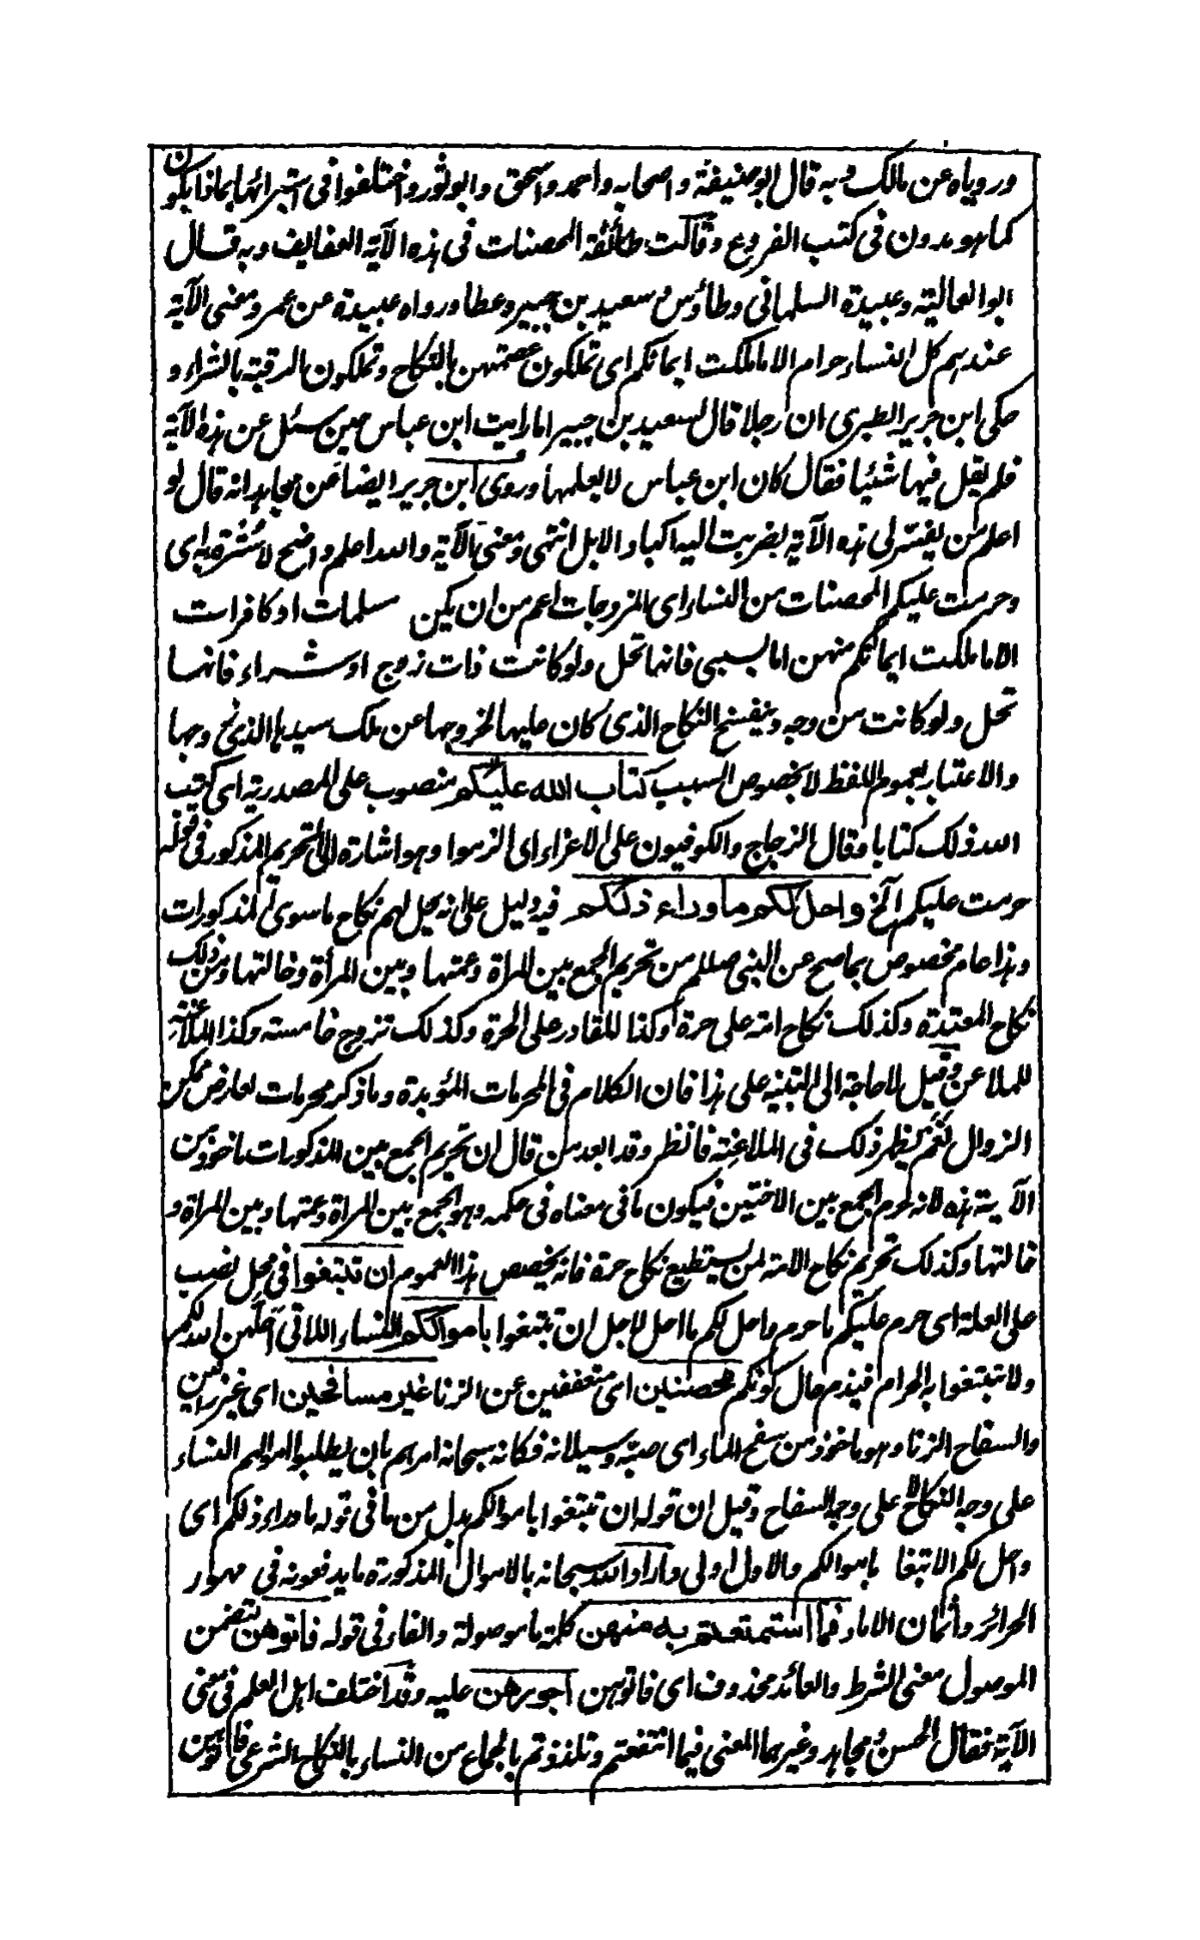 وروياه عن مالك وبه قال ابو حنيفة واصحابه واحمد واسحق وابو ثور واختلفوا فى استبرائها بماذا يكون
كما هو مدون فى كتب الفروع وقالت طائفة المحصنات فى هذه الآية العفايف وبه قال
ابو العالية وعبيدة السلمانى وطاؤس وسعيد بن جبير وعطا ورواه عبيدة عن عمر ومعنى الآية
عندهم كل النساء حرام الا ما ملكت ايمانكم اى تملكون عصمتهن بالنكاح وتملكون الرقبة بالشراء و
حكى ابن جرير الطبرى ان رجلا قال لسعيد بن جبير اما رايت ابن عباس حين سئل عن هذه الآية
فلم يقل فيها شئيا فقال كان ابن عباس لا يعلمها وروى ابن جرير ايضا عن مجاهد انه قال لو
اعلم من يفسر لى هذه الآية لضربت اليه اكباد الابل انتهى ومعنى الآية والله اعلم واضح لا سترة به اى
وحرمت عليكم المحصنات من النساء اى المزوجات اعم من ان يكن مسلمات او كافرات
الا ما ملكت ايمانكم منهن اما بسبى فانها تحل ولو كانت ذات زوج او شراء فانها
تحل ولو كانت مزوجه وينفسخ النكاح الذى كان عليها لخروجها عن ملك سيدها الذى زوجها
والاعتبار بعموم اللفظ لا بخصوص السبب كتاب الله عليكم منصوب على المصدرية اى كتب
الله ذلك كتابا وقال الزجاج والكوفيون على الاغراء اى الزموا وهو اشارة الى التحريم المذكور فى قوله
حرمت عليكم الخ واحل لكم ما وراء ذلكم فيه دليل على انه يحل لهم نكاح ما سوى المذكورات
وهذا عام مخصوص بما صح عن النبى صللم من تحريم الجمع بين المراة وعمتها وبين المرأة وخالتها ومن ذلك
نكاح المعتدة وكذلك نكاح امة على حرة وكذا للقادر على الحرة وكذلك تزوج خامسة وكذا الملاعنة
للملاعن وقيل لا حاجة الى التنبيه على هذا فان الكلام فى المحرمات المؤبدة وما ذكر محرمات لعارض ممكن
الزوال نعم يظهر ذلك فى الملاعنة فانظر وقد ابعد من قال ان تحريم الجمع بين المذكورات ماخوذ من
الآية هذه لانه حرم الجمع بين الاختين فيكون ما فى معناه فى حكمه وهو الجمع بين المراة وعمتها وبين المراة و
خالتها وكذلك تحريم نكاح الامة لمن يستطيع نكاح حرة فانه يخصص هذا العموم ان تبتغوا فى محل نصب
على العلة اى حرم عليكم ما حرم واحل لكم ما احل لاجل ان تبتغوا باموالكم النساء اللاتى احلهن الله لكم
ولا تبتغوا به الحرام فيذهب حال كونكم محصنين اى متعففين عن الزنا غير مسافحين اى غير زانين
والسفاح الزنا وهو ماخوذ من سفح الماء اى صبه وسيلانه فكانه سبحانه امرهم بان يطلبوا باموالهم النساء
على وجه النكاح لا على وجه السفاح وقيل ان قوله ان تبتغوا باموالكم بدل من ما فى قوله ما وراء ذلكم اى
واحل لكم الابتغا باموالكم والاول اولى واراد الله سبحانه بالاموال المذكورة ما يدفعونه فى مهور
الحرائر واثمان الاماء فما استمتعتم به منهن كلمة ما موصولة والفاء فى قوله فاتوهن لتضمن
الموصول معنى الشرط والعائد محذوف اى فاتوهن اجورهن عليه وقد اختلف اهل العلم فى معنى
الآية فقال الحسن ومجاهد وغيرهما المعنى فيما انتفعتم وتلذذتم بالجماع من النساء بالنكاح الشرعى فاتوهن